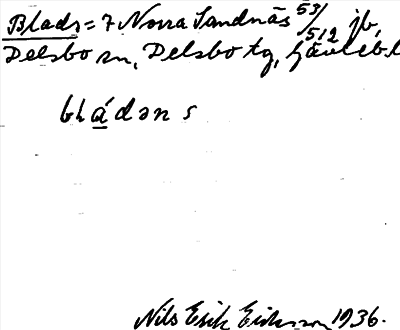 Blads = 7 Norra Sandnäs 53/512 jb,
Delsbo sn, Delsbo tg, Gävlebl
bládən s
Nils Erik Eriksson 1936.